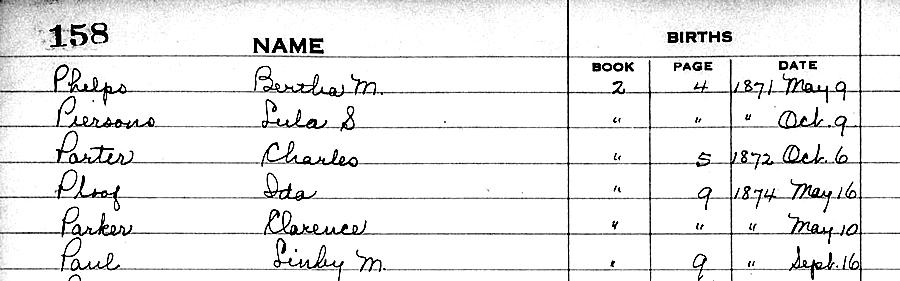 158 NAME BIRTHS
BOOK PAGE DATE
Phelps Bertha M. 2 4 1871 May 9
Piersons Lula S " " " Oct. 9
Porter Charles " 5 1872 Oct. 6
Ploof Ida " 9 1874 May 16
Parker Clarence " " " May 10
Paul M. " 9 " Sept. 16